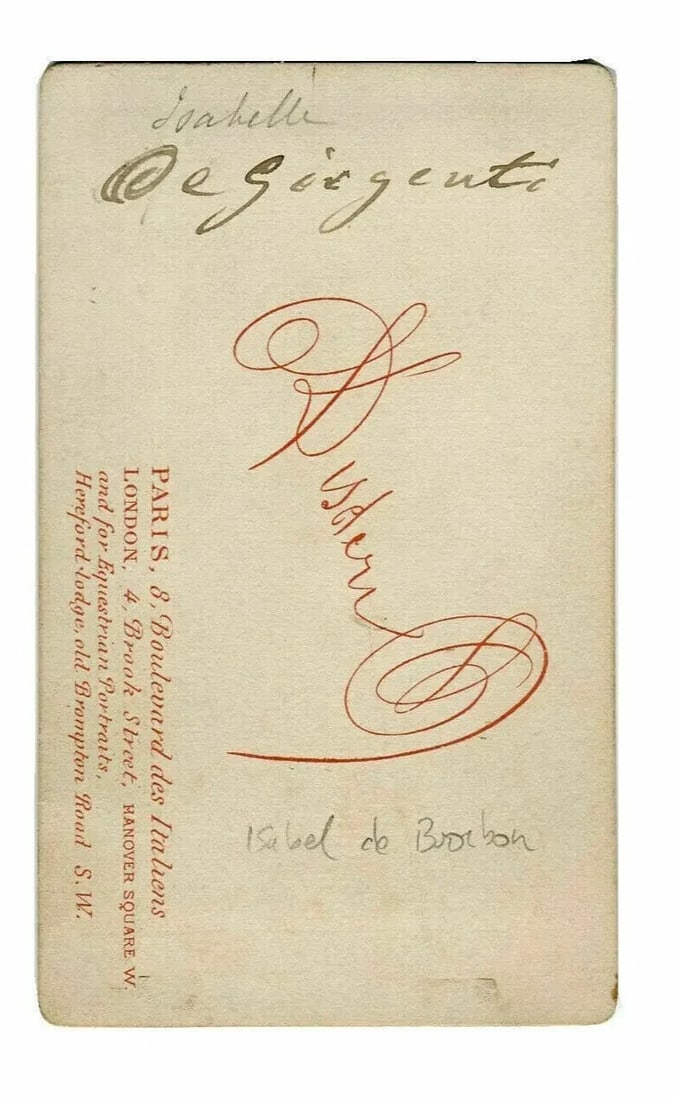 Isabelle
De Girgenti
Disderi
PARIS, 8, Boulevard des Italiens
LONDON, 4, Brook Street, HANOVER SQUARE W.
and for Equestrian Portraits,
Hereford-lodge, old Brompton Road S.W.
Isabel de Borbon